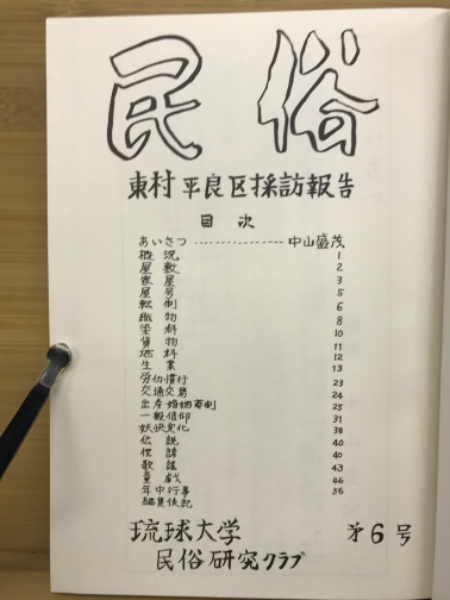 民俗
東村平良区採訪報告
目次
あいさつ ---------------- 中山盛茂
概況 1
屋敷 2
家屋 3
屋号 5
制 6
織物 8
染料 10
貨物 11
燃料 12
生業 13
労仂慣行 23
交通交易 24
出産婚姻葬制 25
一般信仰 31
妖怪変化 38
伝説 40
俚諺 40
歌謡 43
童戯 46
年中行事 56
編集後記
琉球大学 第6号
民俗研究クラブ